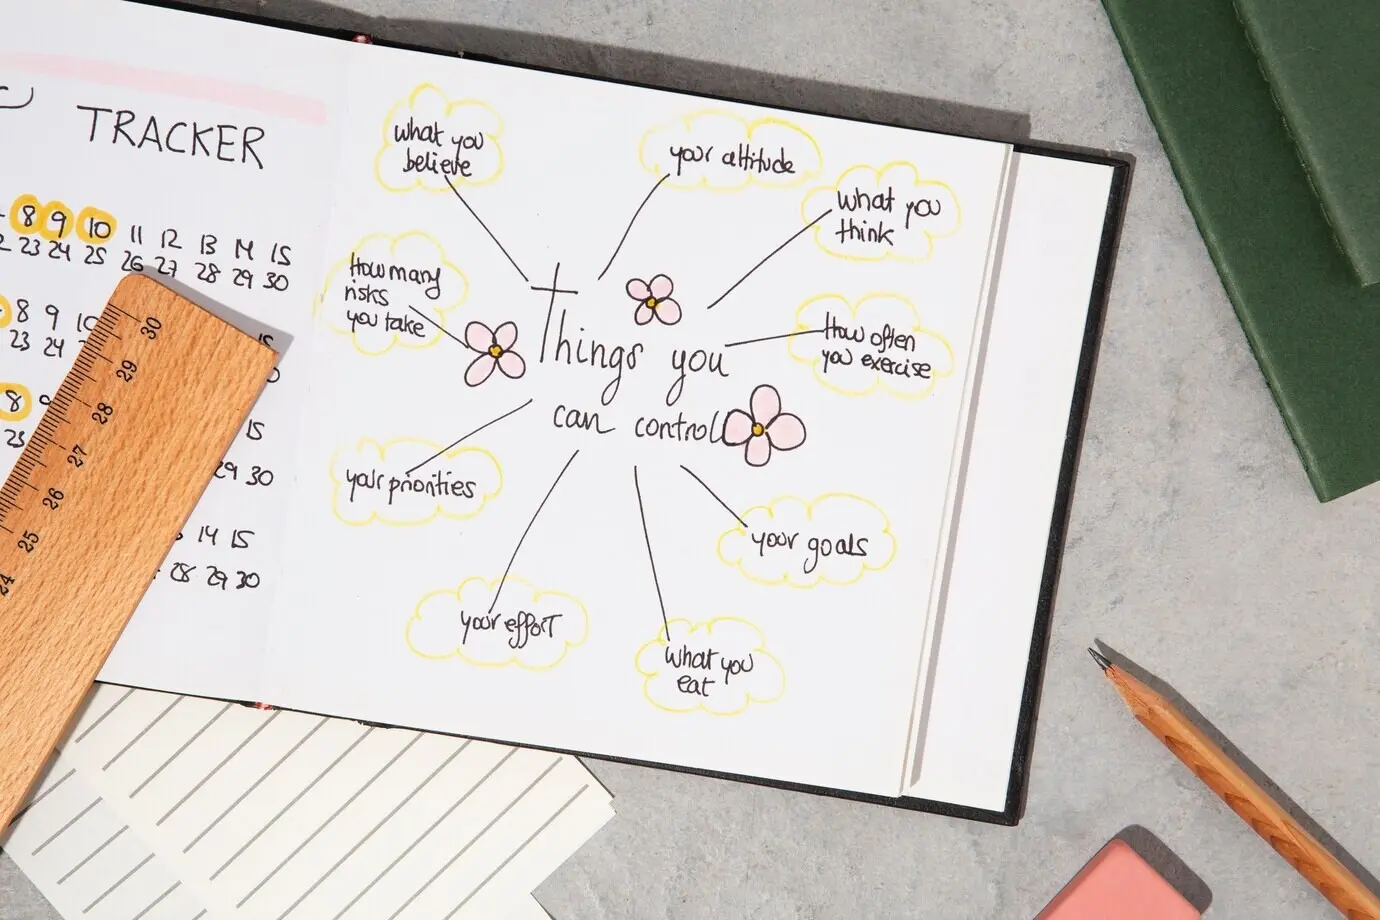 TRACKER
8 9 10 11 12 13 14 15
23 24 25 26 27 28 29 30
8 9 10 15
23 24
8 9 15
23 29 30
14 15
28 29 30
30
29
28
27
26
25
24
what you
believe
your attitude
what you
think
How many
risks
you take
Things you
can control
How often
you exercise
your priorities
your goals
your effort
what you
eat